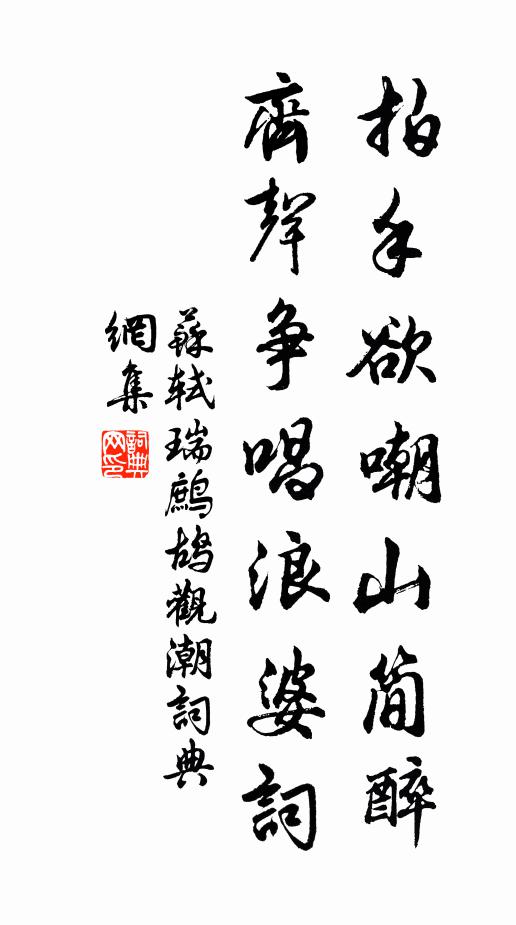 拍手欲嘲山简醉
齊聲争唱浪婆詞
蘇軾瑞鷓鴣觀潮詞典
網集
詞典
网印